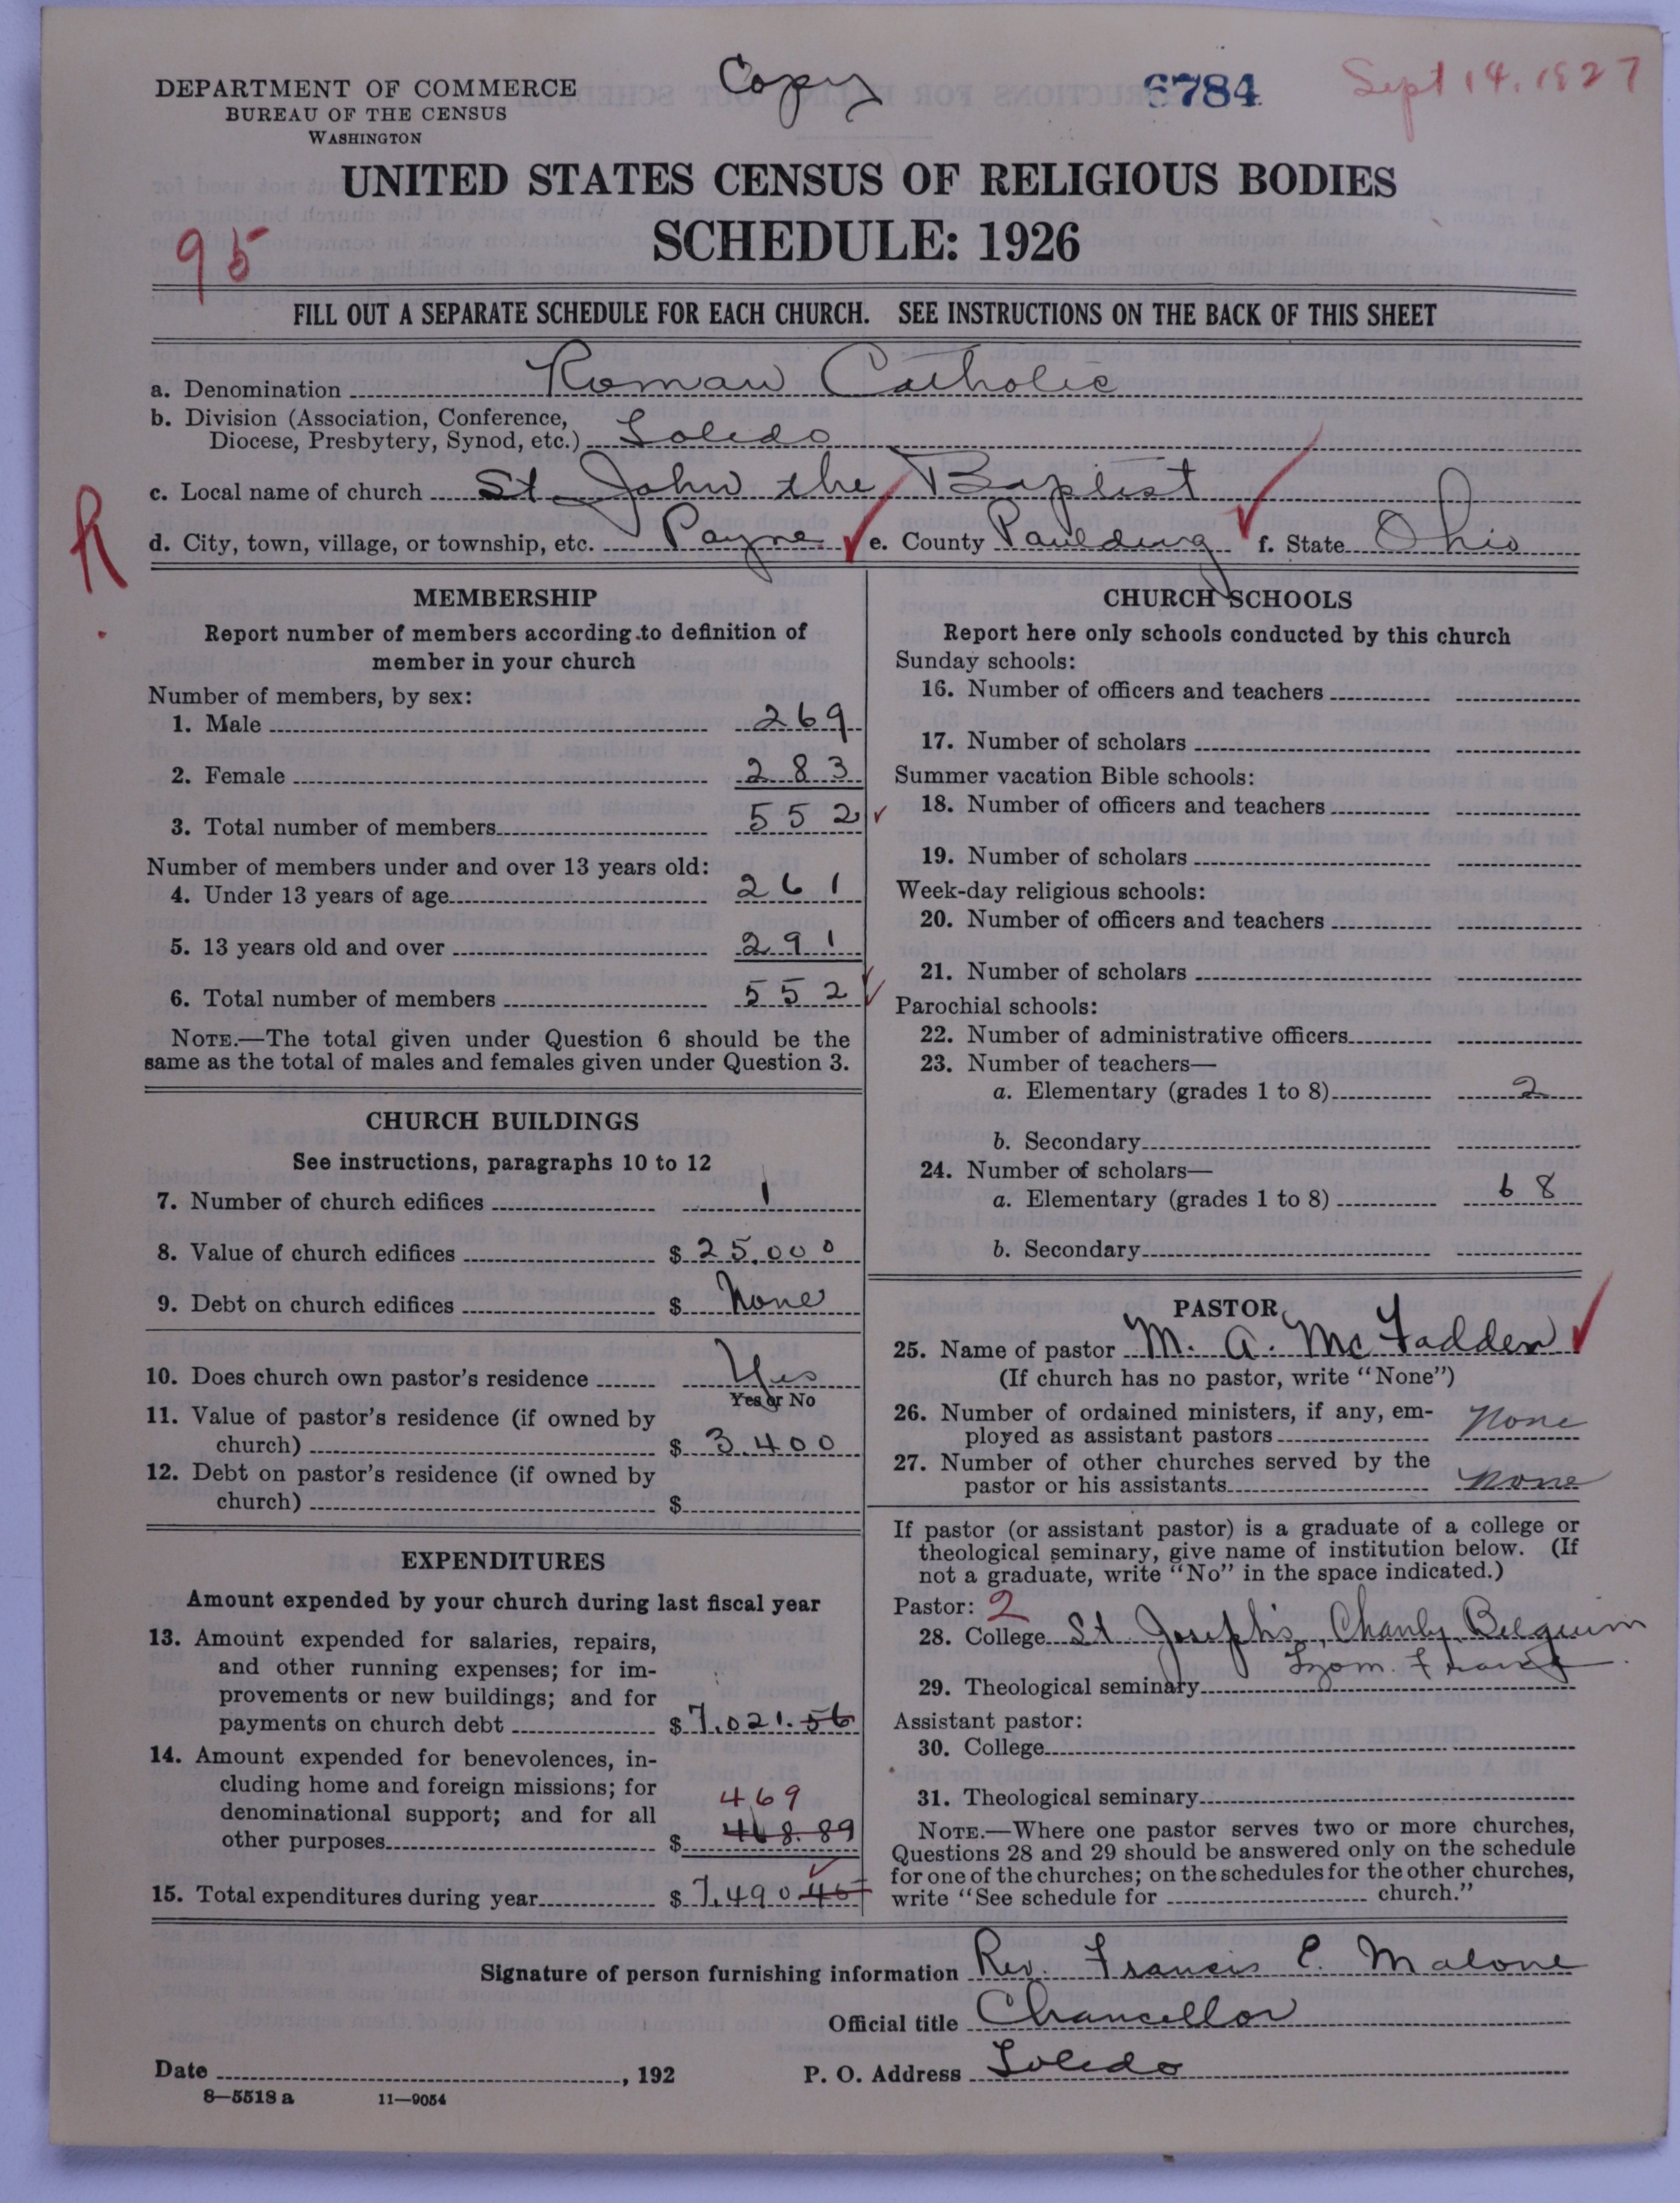 DEPARTMENT OF COMMERCE
BUREAU OF THE CENSUS
WASHINGTON
Copy
6784
Sept 14, 1927
UNITED STATES CENSUS OF RELIGIOUS BODIES
SCHEDULE: 1926
95
FILL OUT A SEPARATE SCHEDULE FOR EACH CHURCH. SEE INSTRUCTIONS ON THE BACK OF THIS SHEET
a. Denomination Roman Catholic
b. Division (Association, Conference,
Diocese, Presbytery, Synod, etc.) Toledo
c. Local name of church St John the Baptist
R
d. City, town, village, or township, etc. Payne e. County Paulding f. State Ohio
MEMBERSHIP
Report number of members according to definition of
member in your church
Number of members, by sex:
1. Male 269
2. Female 283
3. Total number of members 552
Number of members under and over 13 years old:
4. Under 13 years of age 261
5. 13 years old and over 291
6. Total number of members 552
NOTE.—The total given under Question 6 should be the
same as the total of males and females given under Question 3.
CHURCH BUILDINGS
See instructions, paragraphs 10 to 12
7. Number of church edifices 1
8. Value of church edifices $ 25,000
9. Debt on church edifices $ None
10. Does church own pastor's residence Yes
Yes or No
11. Value of pastor's residence (if owned by
church) $ 3400
12. Debt on pastor's residence (if owned by
church) $
EXPENDITURES
Amount expended by your church during last fiscal year
13. Amount expended for salaries, repairs,
and other running expenses; for im-
provements or new buildings; and for
payments on church debt $ 7,021.56
14. Amount expended for benevolences, in-
cluding home and foreign missions; for
denominational support; and for all 469
other purposes $ 468.89
15. Total expenditures during year $ 7,490.45
CHURCH SCHOOLS
Report here only schools conducted by this church
Sunday schools:
16. Number of officers and teachers
17. Number of scholars
Summer vacation Bible schools:
18. Number of officers and teachers
19. Number of scholars
Week-day religious schools:
20. Number of officers and teachers
21. Number of scholars
Parochial schools:
22. Number of administrative officers
23. Number of teachers—
a. Elementary (grades 1 to 8) 2
b. Secondary
24. Number of scholars—
a. Elementary (grades 1 to 8) 68
b. Secondary
PASTOR
25. Name of pastor M. A. McFadden
(If church has no pastor, write "None")
26. Number of ordained ministers, if any, em-
ployed as assistant pastors None
27. Number of other churches served by the
pastor or his assistants None
If pastor (or assistant pastor) is a graduate of a college or
theological seminary, give name of institution below. (If
not a graduate, write "No" in the space indicated.)
Pastor: 2
28. College St Joseph's, Belguim
France
29. Theological seminary
Assistant pastor:
30. College
31. Theological seminary
NOTE.—Where one pastor serves two or more churches,
Questions 28 and 29 should be answered only on the schedule
for one of the churches; on the schedules for the other churches,
write "See schedule for church."
Signature of person furnishing information Rev. Francis E. Malone
Official title Chancellor
Date , 192 P. O. Address Toledo
8—5518 a 11—9054